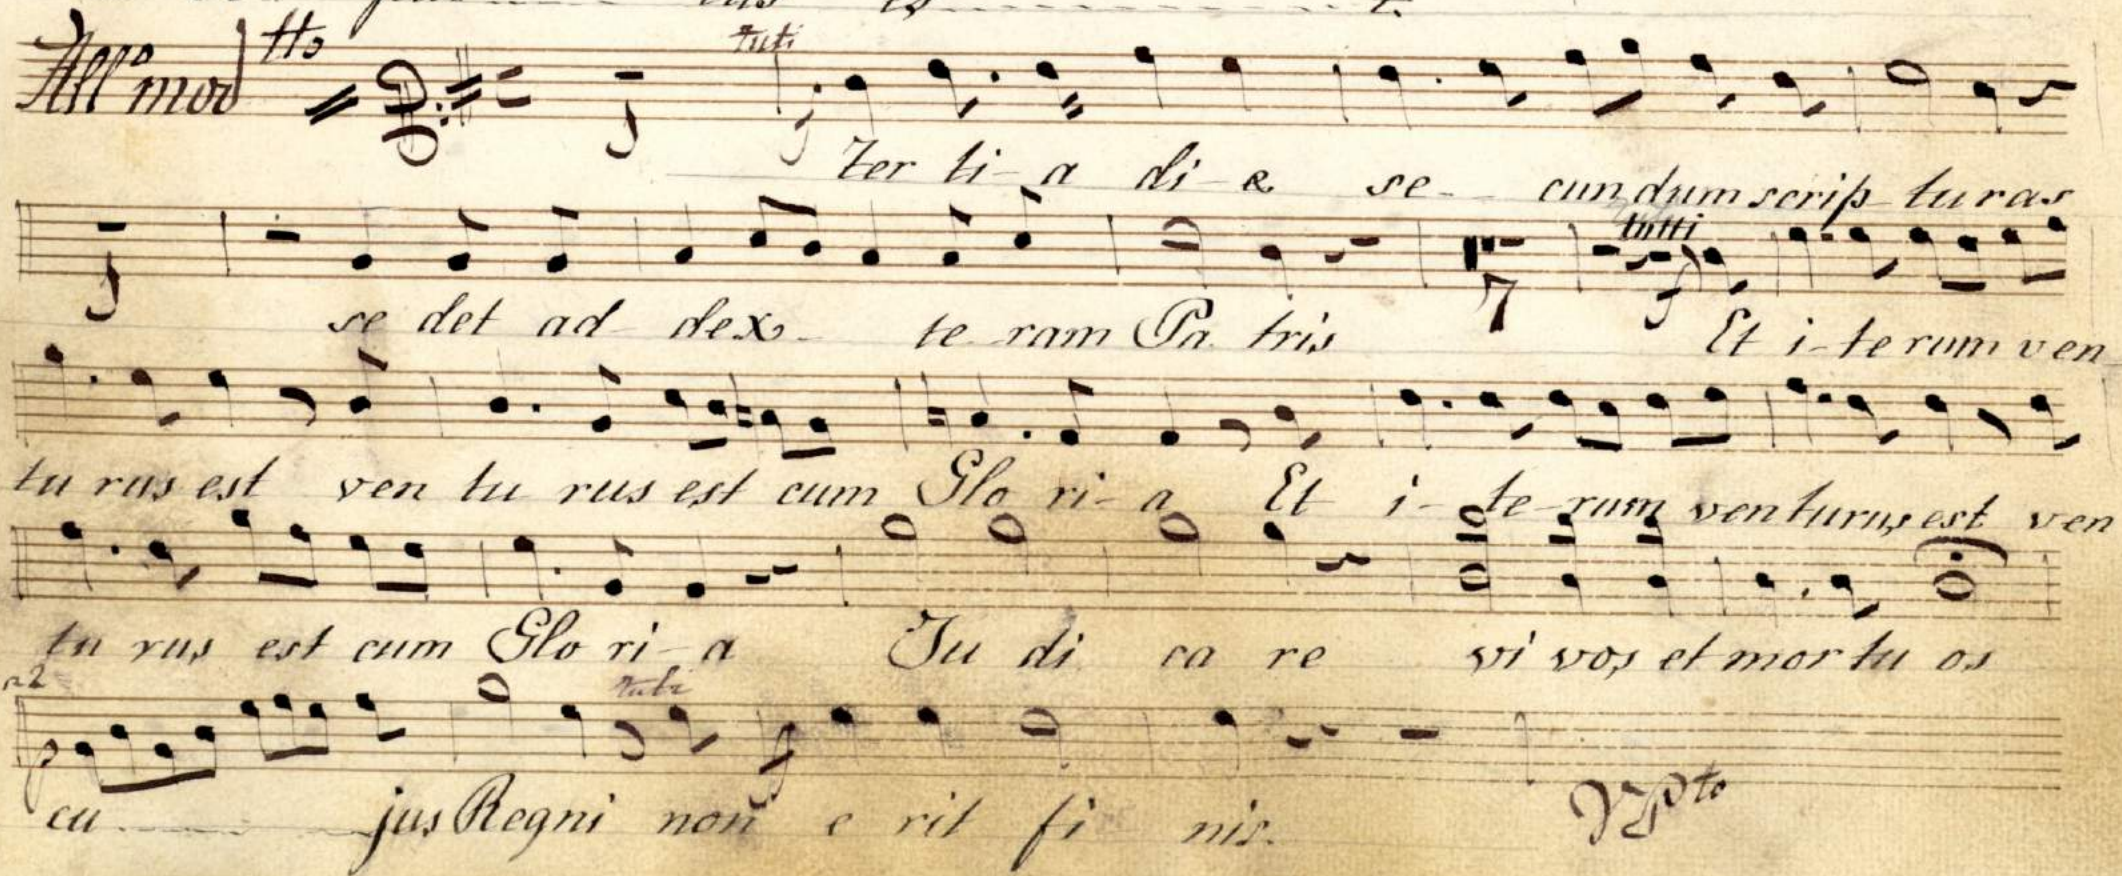 All.º mod tto
tuti
Ter ti - a di - e se - cundum scrip turas
tutti
se det ad dex - te ram Pa tris 7 Et i - te rum ven
tu rus est ven tu rus est cum Glo ri - a Et i - te - rum venturus est ven
tu rus est cum Glo ri - a Ju di ca re vi vos et mor tu os
tuti
cu jus Regni non e rit fi nis.